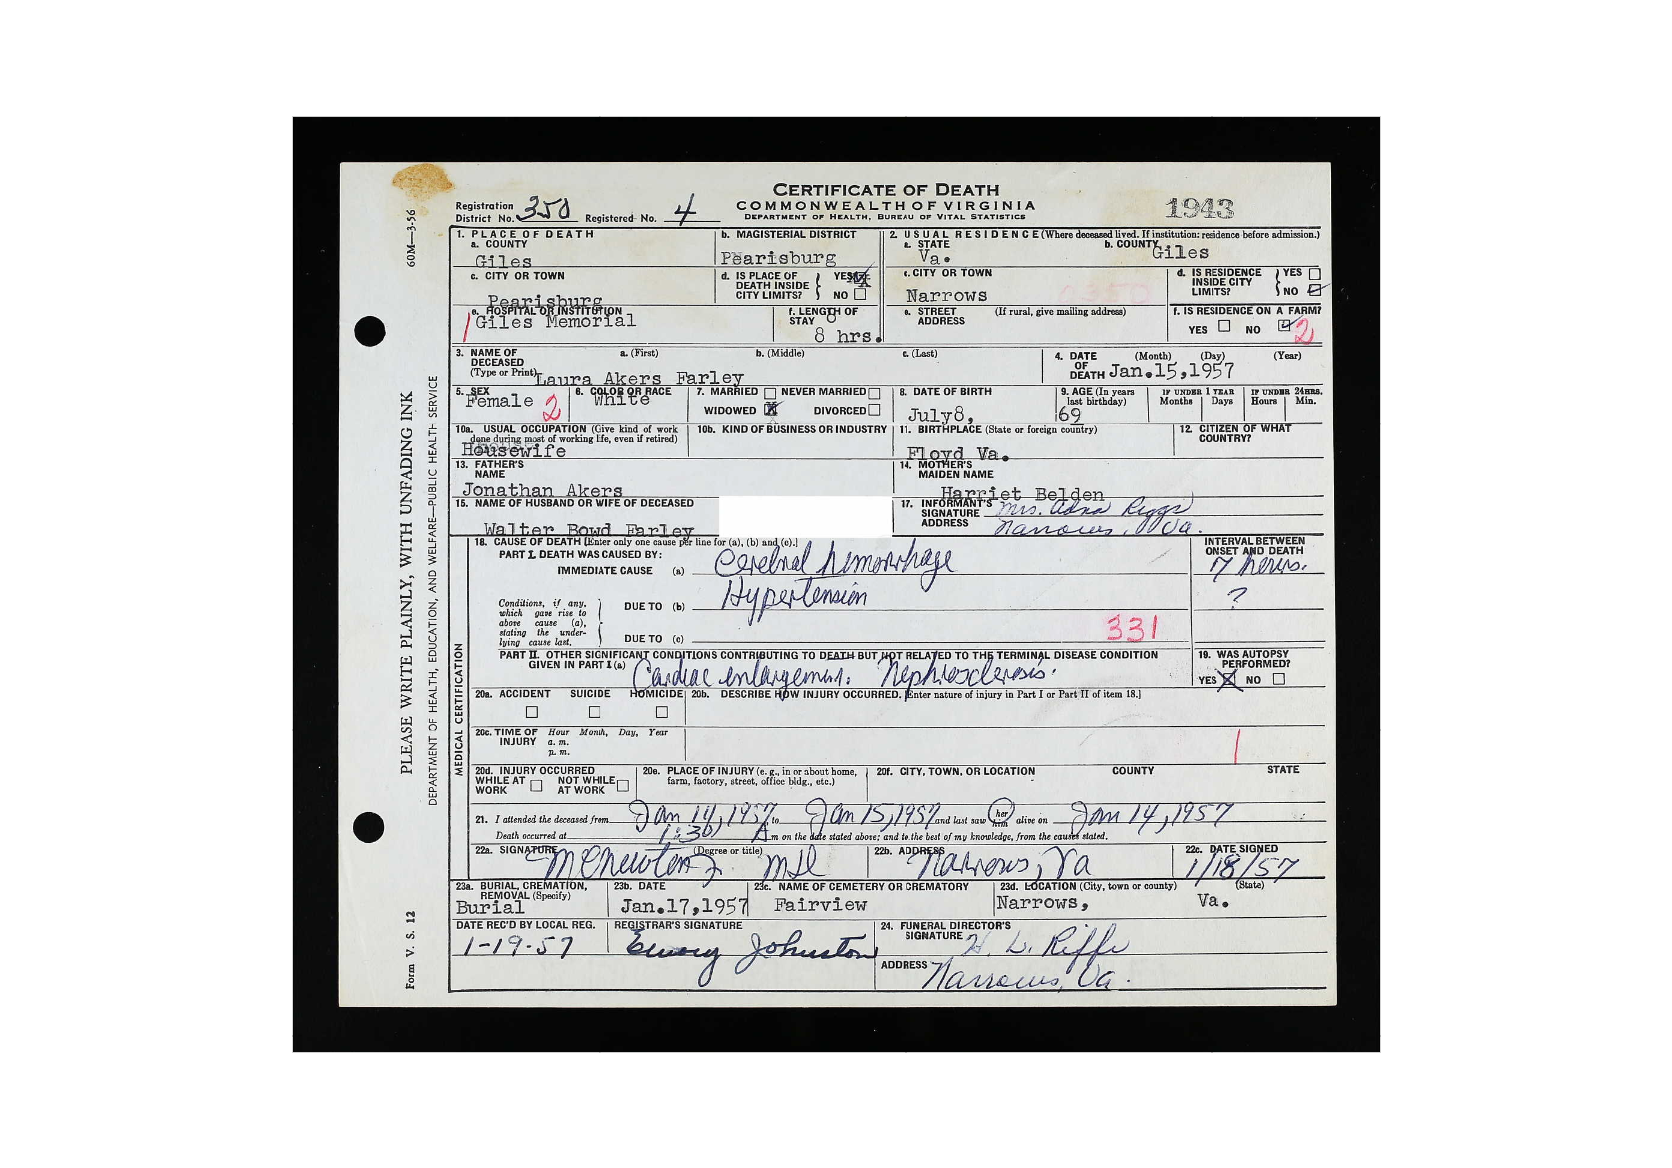 CERTIFICATE OF DEATH
COMMONWEALTH OF VIRGINIA
DEPARTMENT OF HEALTH, BUREAU OF VITAL STATISTICS
1943
Registration District No. 350 Registered No. 4
60M—3-56
PLEASE WRITE PLAINLY, WITH UNFADING INK
DEPARTMENT OF HEALTH, EDUCATION, AND WELFARE—PUBLIC HEALTH SERVICE
Form V. S. 12
1. PLACE OF DEATH
a. COUNTY
Giles
b. MAGISTERIAL DISTRICT
Pearisburg
2. USUAL RESIDENCE (Where deceased lived. If institution: residence before admission.)
a. STATE
Va.
b. COUNTY
Giles
c. CITY OR TOWN
Pearisburg
d. IS PLACE OF DEATH INSIDE CITY LIMITS? YES NO
c. CITY OR TOWN
Narrows
d. IS RESIDENCE INSIDE CITY LIMITS? YES NO
e. HOSPITAL OR INSTITUTION
1 Giles Memorial
f. LENGTH OF STAY
8 hrs.
e. STREET ADDRESS (If rural, give mailing address)
f. IS RESIDENCE ON A FARM?
YES NO 2
3. NAME OF DECEASED (Type or Print)
a. (First) b. (Middle) c. (Last)
Laura Akers Farley
4. DATE OF DEATH (Month) (Day) (Year)
Jan.15,1957
5. SEX
Female 2
6. COLOR OR RACE
White
7. MARRIED NEVER MARRIED
WIDOWED X DIVORCED
8. DATE OF BIRTH
July8,
9. AGE (In years last birthday)
69
IF UNDER 1 YEAR
Months Days
IF UNDER 24HRS.
Hours Min.
10a. USUAL OCCUPATION (Give kind of work done during most of working life, even if retired)
Housewife
10b. KIND OF BUSINESS OR INDUSTRY
11. BIRTHPLACE (State or foreign country)
Floyd Va.
12. CITIZEN OF WHAT COUNTRY?
13. FATHER'S NAME
Jonathan Akers
14. MOTHER'S MAIDEN NAME
Harriet Belden
15. NAME OF HUSBAND OR WIFE OF DECEASED
Walter Bowd Farley
17. INFORMANT'S SIGNATURE Mrs. Edna Riggs
ADDRESS Narrows, Va.
MEDICAL CERTIFICATION
18. CAUSE OF DEATH [Enter only one cause per line for (a), (b) and (c).]
PART I. DEATH WAS CAUSED BY:
IMMEDIATE CAUSE (a) Cerebral hemorrhage
INTERVAL BETWEEN ONSET AND DEATH
7 hours.
Conditions, if any, which gave rise to above cause (a), stating the underlying cause last.
DUE TO (b) Hypertension
?
DUE TO (c)
331
PART II. OTHER SIGNIFICANT CONDITIONS CONTRIBUTING TO DEATH BUT NOT RELATED TO THE TERMINAL DISEASE CONDITION GIVEN IN PART I (a)
Cardiac enlargement. Nephrosclerosis.
19. WAS AUTOPSY PERFORMED?
YES X NO
20a. ACCIDENT SUICIDE HOMICIDE
20b. DESCRIBE HOW INJURY OCCURRED. [Enter nature of injury in Part I or Part II of item 18.]
20c. TIME OF INJURY Hour Month, Day, Year
a. m.
p. m.
1
20d. INJURY OCCURRED
WHILE AT WORK NOT WHILE AT WORK
20e. PLACE OF INJURY (e. g., in or about home, farm, factory, street, office bldg., etc.)
20f. CITY, TOWN, OR LOCATION COUNTY STATE
21. I attended the deceased from Jan 14, 1957 to Jan 15, 1957 and last saw her him alive on Jan 14, 1957
Death occurred at 1:30 A m on the date stated above; and to the best of my knowledge, from the causes stated.
22a. SIGNATURE (Degree or title)
M C Newton Jr. MD
22b. ADDRESS
Narrows, Va
22c. DATE SIGNED
1/18/57
23a. BURIAL, CREMATION, REMOVAL (Specify)
Burial
23b. DATE
Jan.17,1957
23c. NAME OF CEMETERY OR CREMATORY
Fairview
23d. LOCATION (City, town or county) (State)
Narrows, Va.
DATE REC'D BY LOCAL REG.
1-19-57
REGISTRAR'S SIGNATURE
Emory Johnston
24. FUNERAL DIRECTOR'S SIGNATURE H. L. Riffe
ADDRESS Narrows, Va.